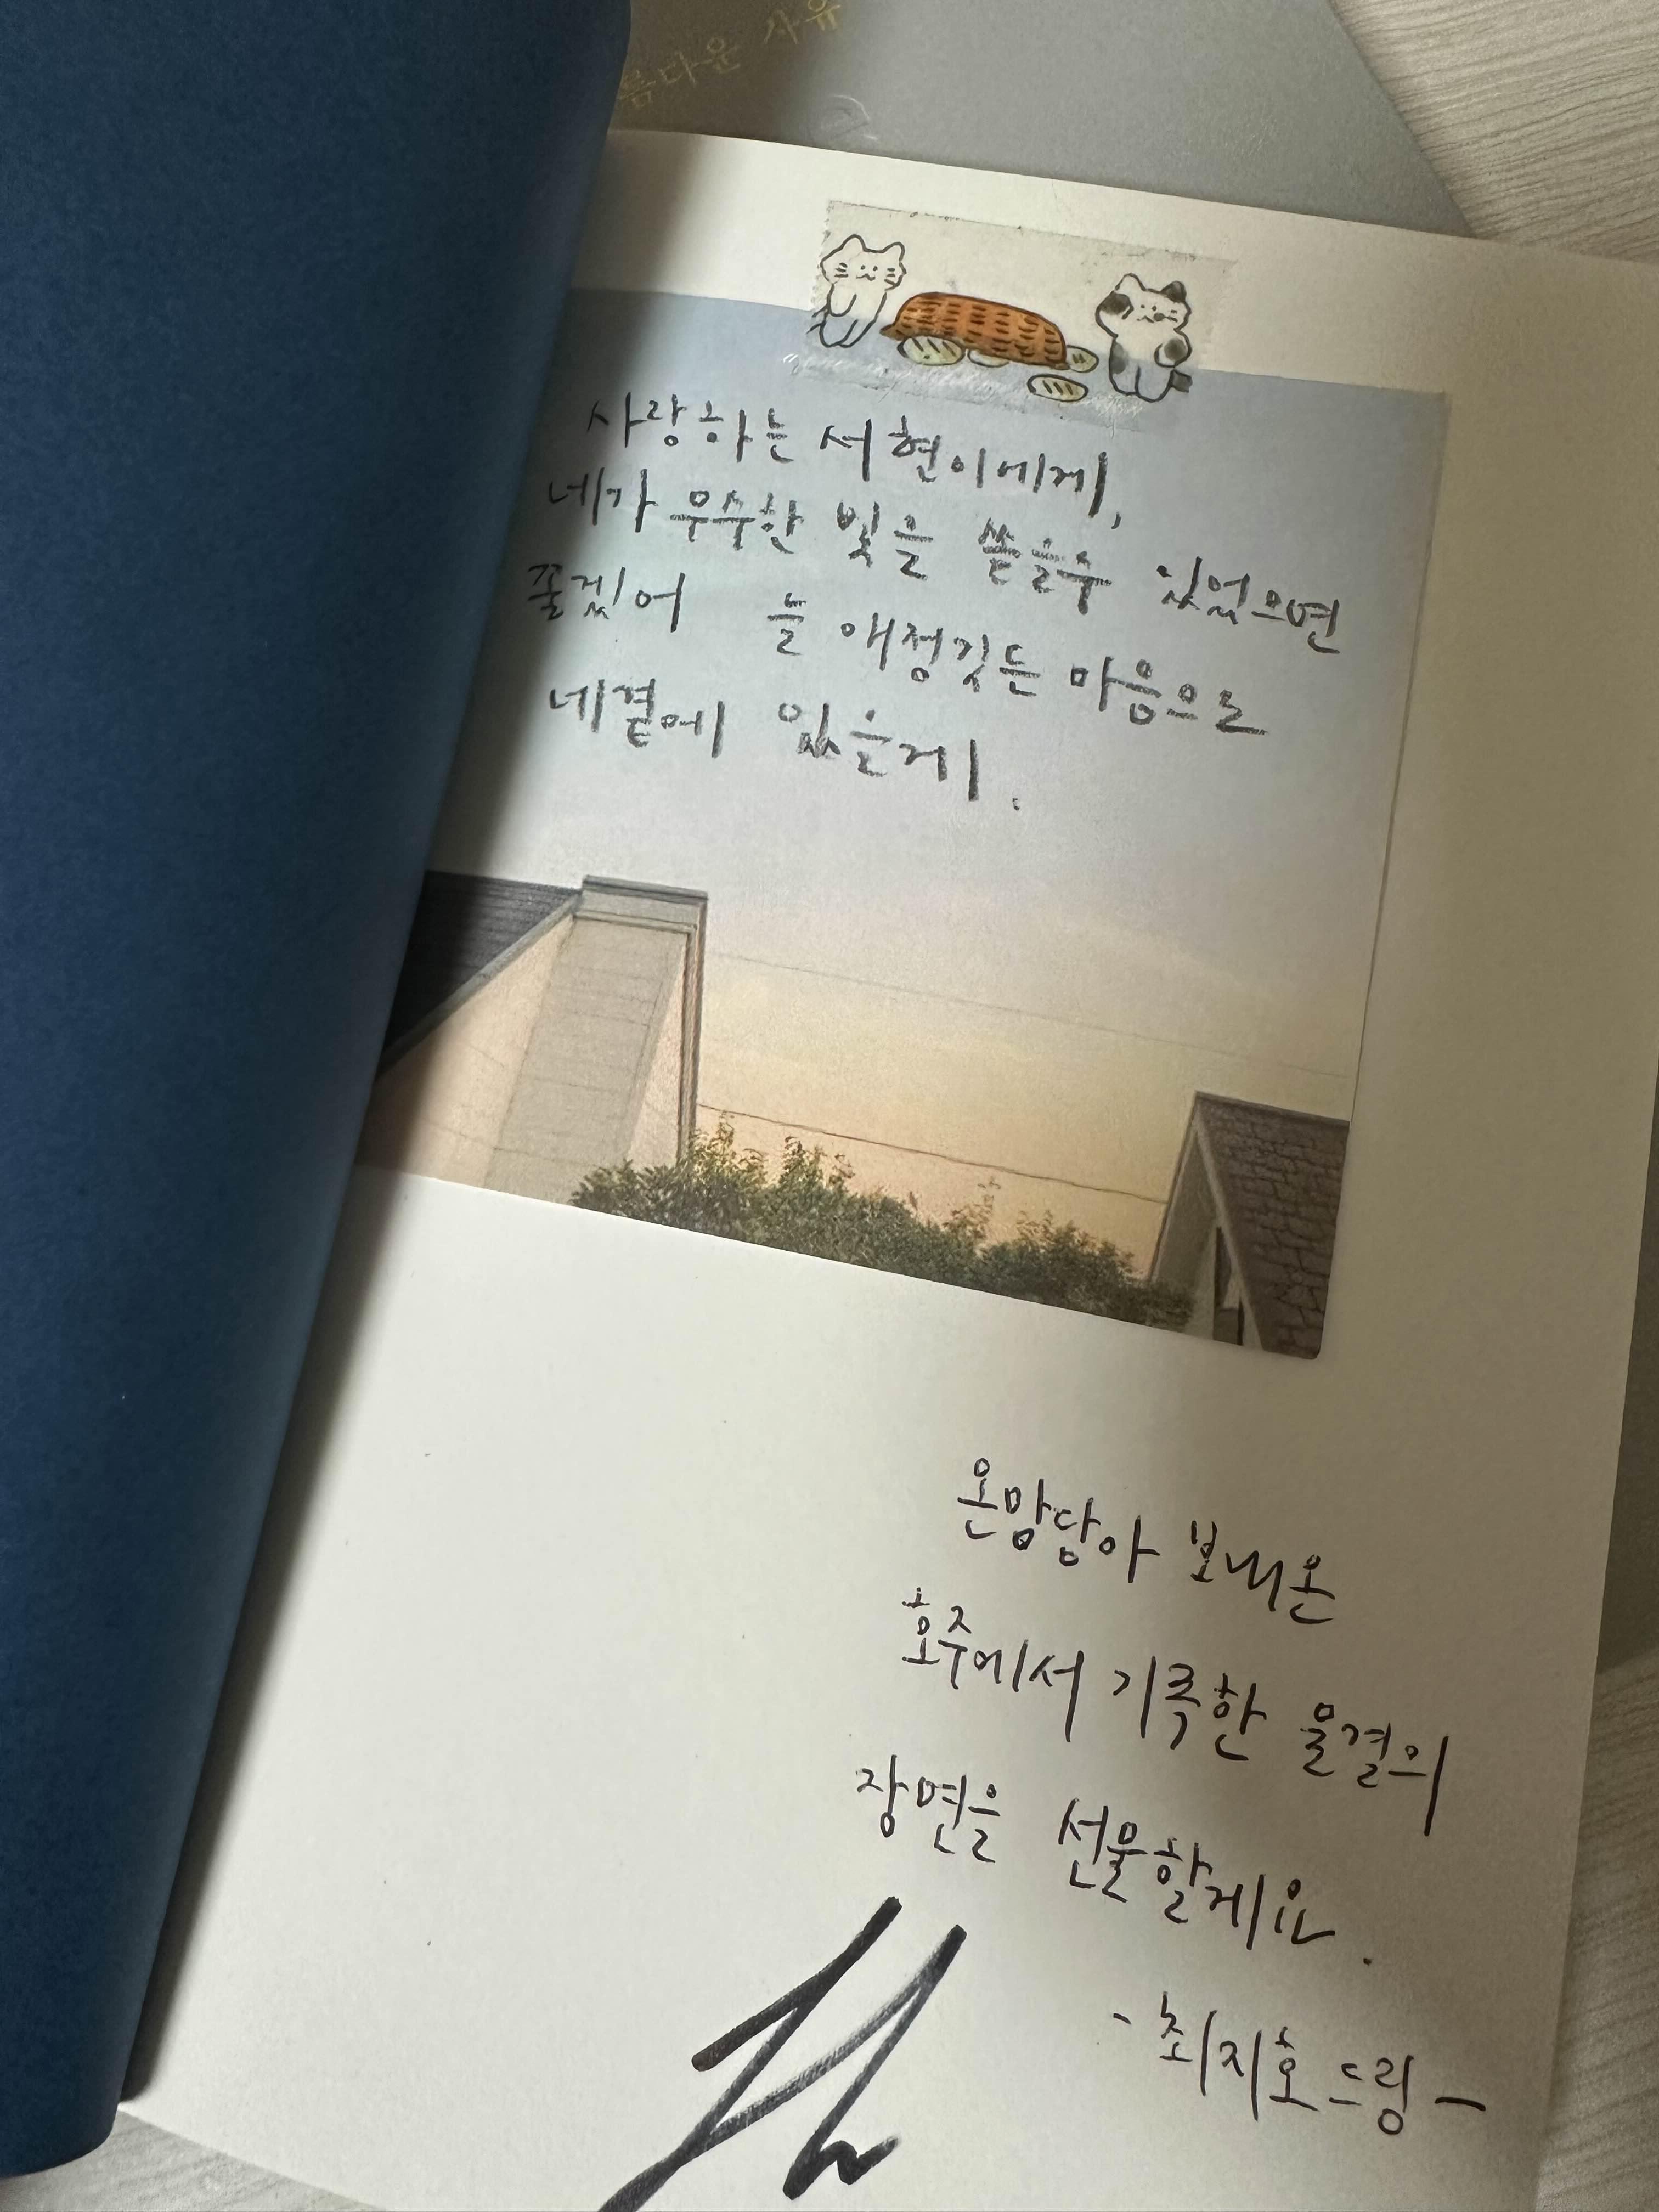 름다운 사유
사랑하는 서현이에게,
네가 무수한 빛을 쏟을수 있었으면
좋겠어 늘 애정깃든 마음으로
네곁에 있을게.
온맘담아 보내온
호주에서 기록한 물결의
장면을 선물할게요.
-최지호 드림-